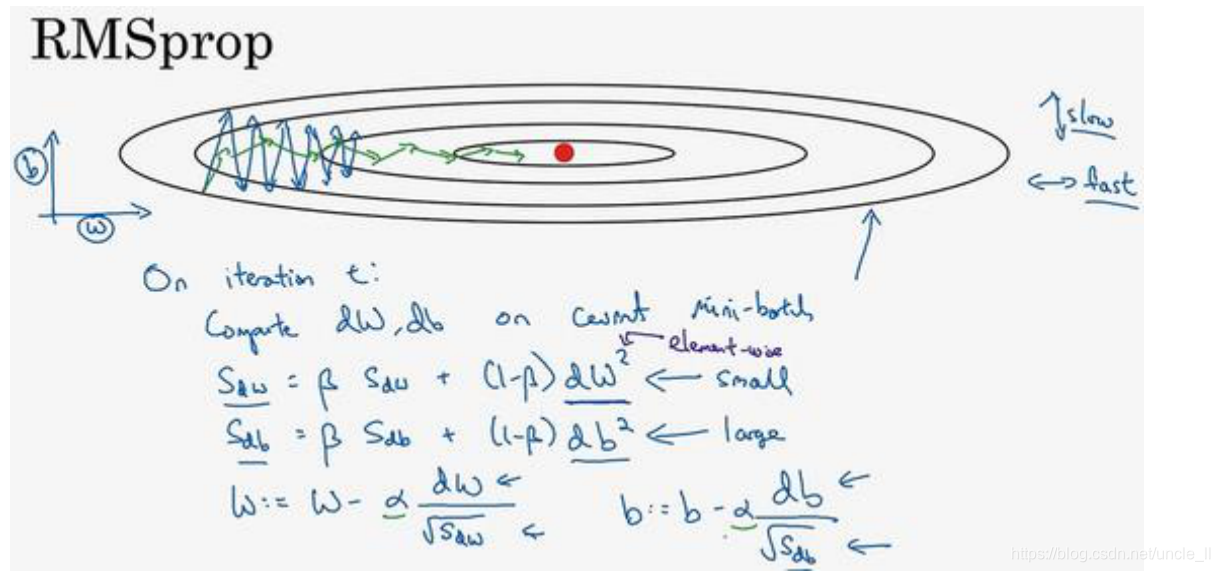 RMSprop
b
w
↕ slow
↔ fast
On iteration t:
Compute dW, db on current mini-batch
element-wise
S_dw = β S_dw + (1-β) dW² ← small
S_db = β S_db + (1-β) db² ← large
w := w - α dw/√S_dw ← b := b - α db/√S_db ←
https://blog.csdn.net/uncle_ll